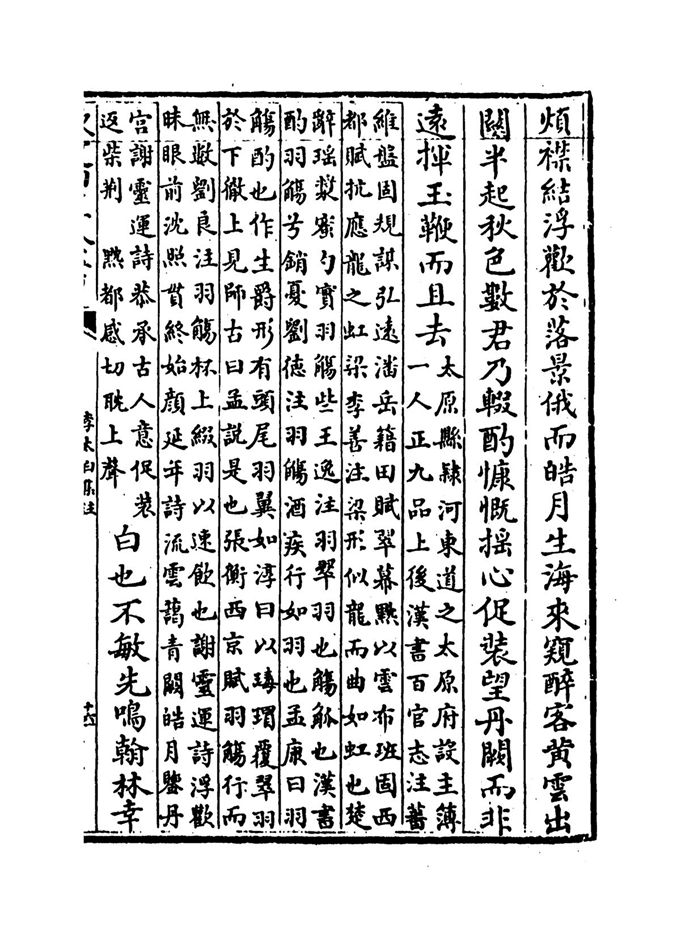 煩襟結浮歡於落景俄而皓月生海來窺醉客黄雲出
關半起秋色數君乃輟酌慷慨揺心促装望丹闕而非
遠揮玉鞭而且去
太原縣隷河東道之太原府設主簿
一人正九品上後漢書百官志注蕃
維盤固規謀弘遠潘岳籍田賦翠幕黕以雲布班固西
都賦抗應龍之虹梁李善注梁形似龍而曲如虹也楚
辭瑶漿蜜勺實羽觴些王逸注羽翠羽也觴觚也漢書
酌羽觴兮銷憂劉徳注羽觴酒疾行如羽也孟康曰羽
觴酌也作生爵形有頭尾羽翼如淳曰以瑇瑁覆翠羽
於下徹上見師古曰孟説是也張衡西京賦羽觴行而
無數劉良注羽觴杯上綴羽以速飲也謝靈運詩浮歡
昧眼前沈照貫終始顔延年詩流雲藹青闕皓月鑒丹
宫謝靈運詩恭承古人意促装
返柴荆 黕都感切耽上聲
白也不敏先鳴翰林幸
李太白集注
十六